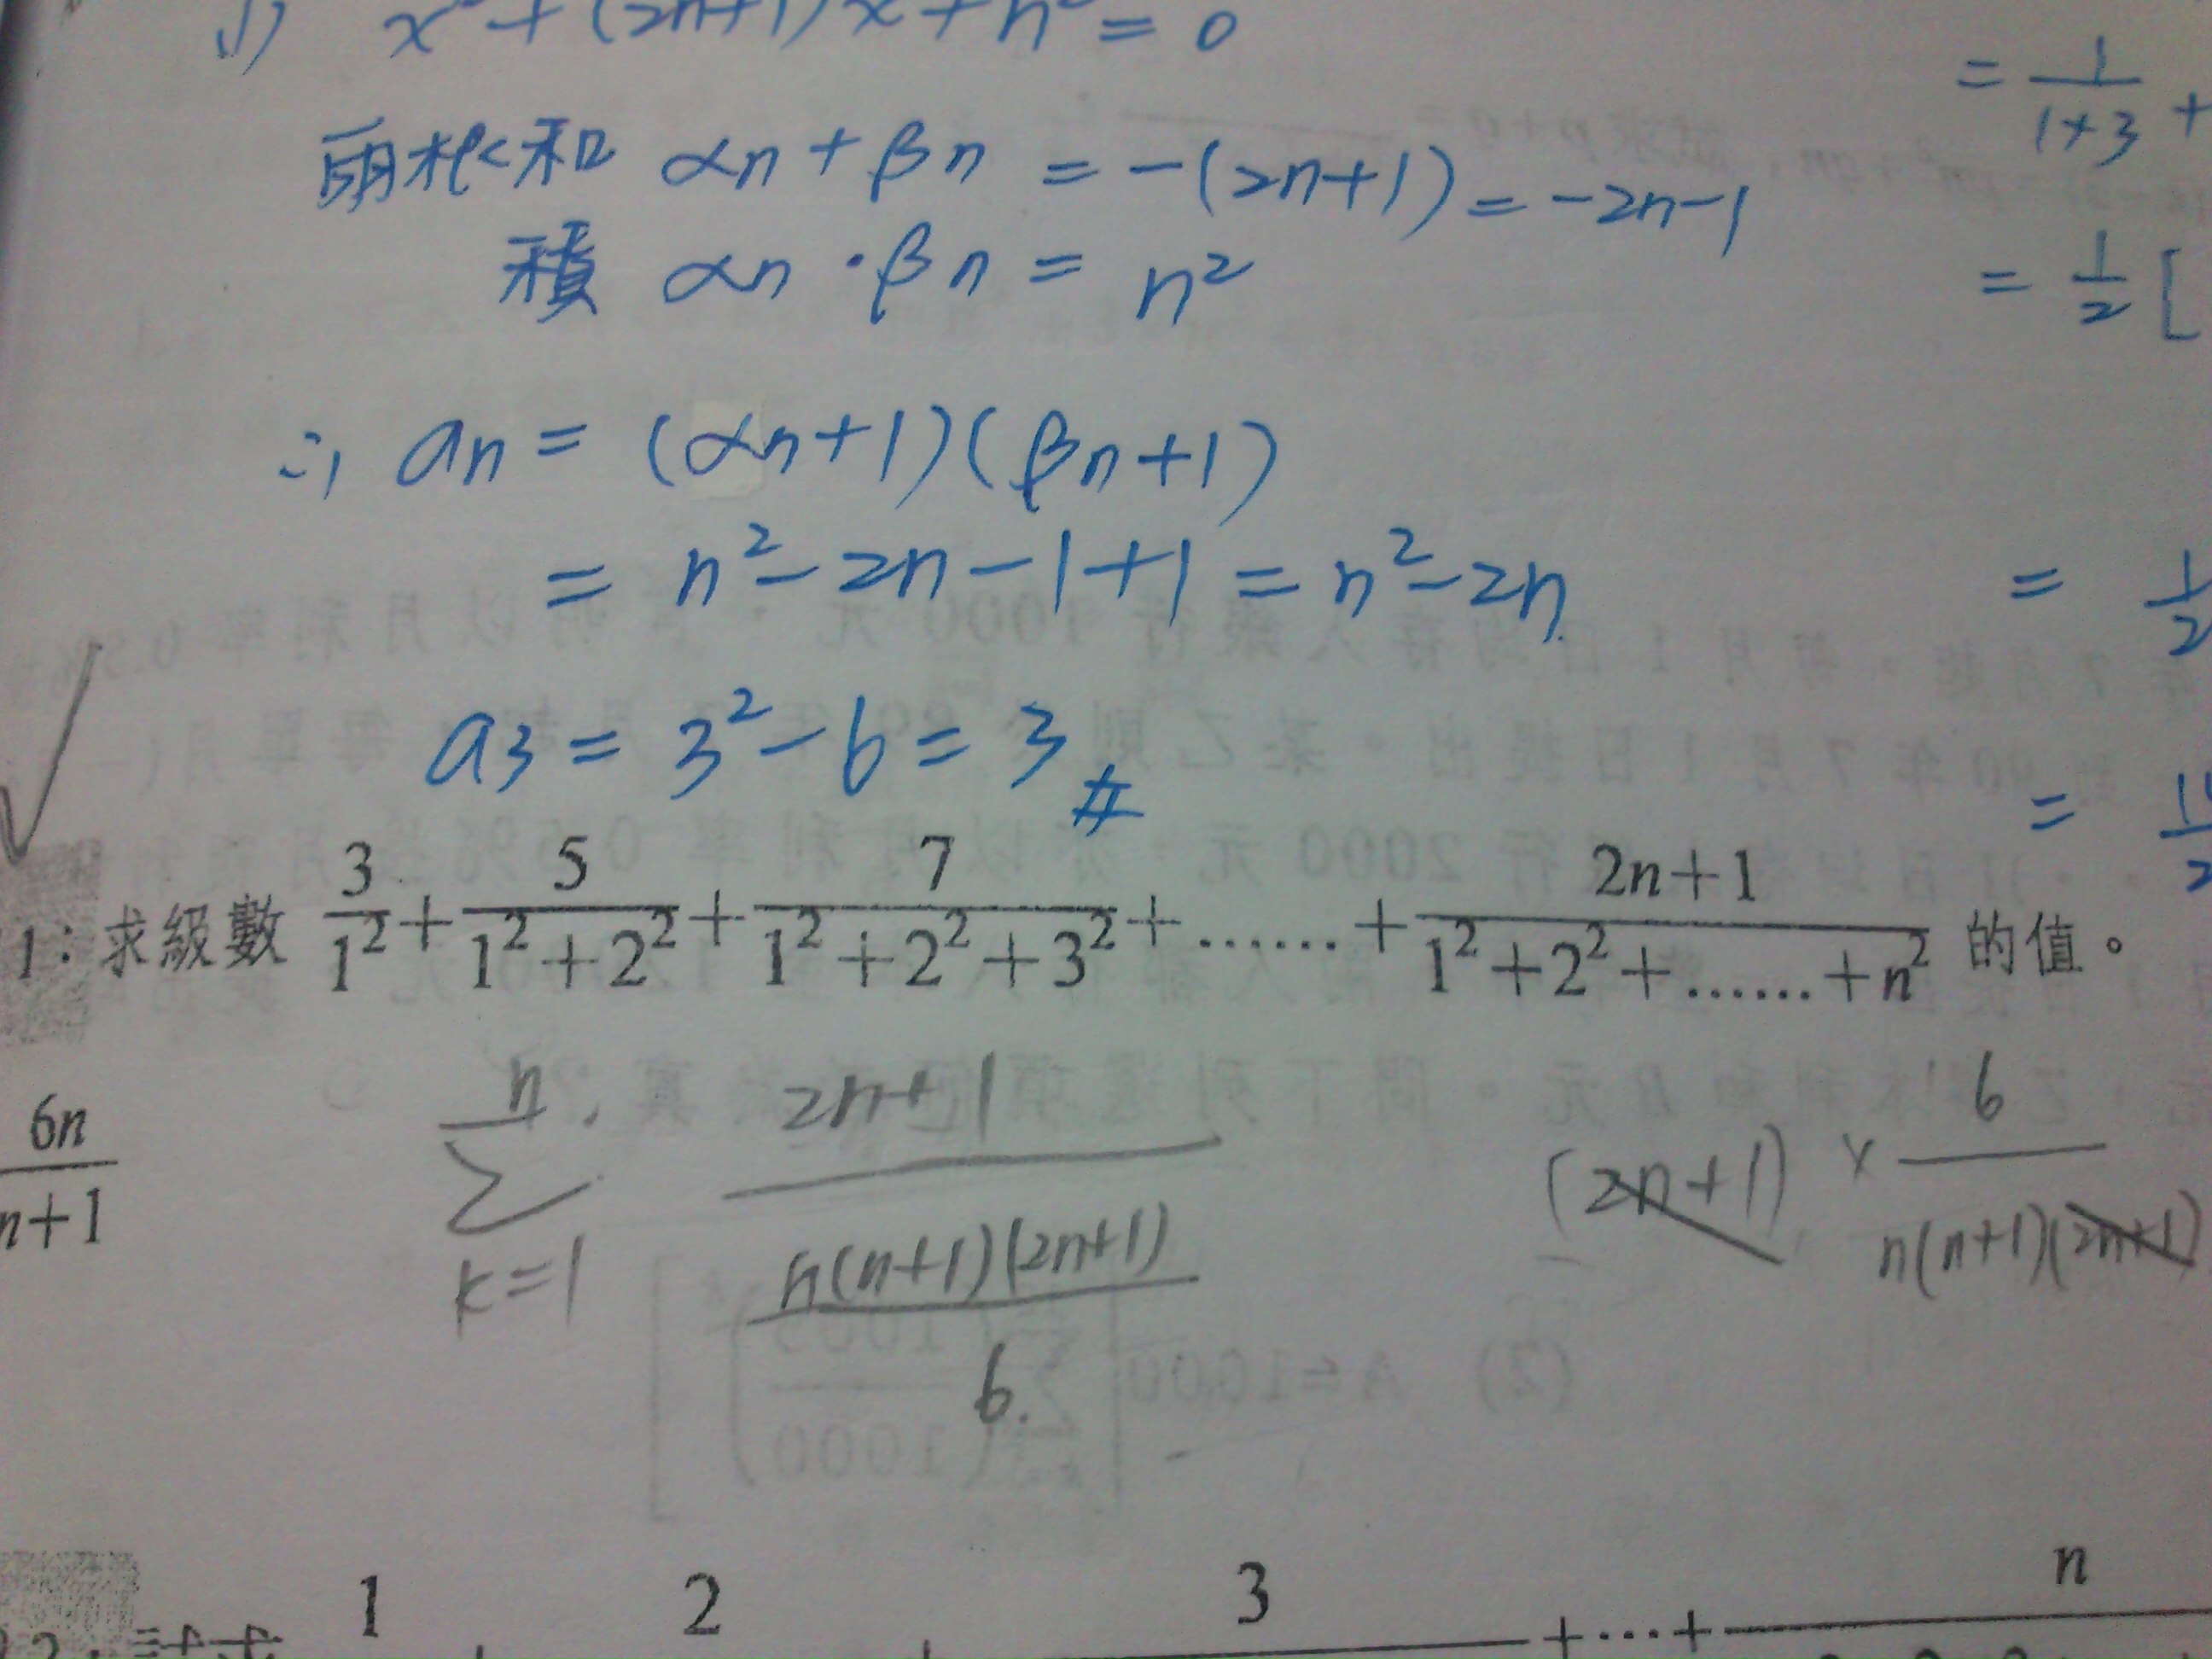 x² + (2n+1)x + n² = 0
兩根和 αn + βn = -(2n+1) = -2n-1
積 αn · βn = n²
∴ an = (αn+1)(βn+1)
= n² - 2n - 1 + 1 = n² - 2n
a3 = 3² - 6 = 3 #
= 1/(1×3) +
= 1/2 [
= 1/2
1：求級數 3/1² + 5/(1²+2²) + 7/(1²+2²+3²) + …… + (2n+1)/(1²+2²+……+n²) 的值。
6n/(n+1)
n Σ k=1 (2n+1)/(n(n+1)(2n+1)/6)
(2n+1) × 6/(n(n+1)(2n+1))
1 2 3 +⋯+ n